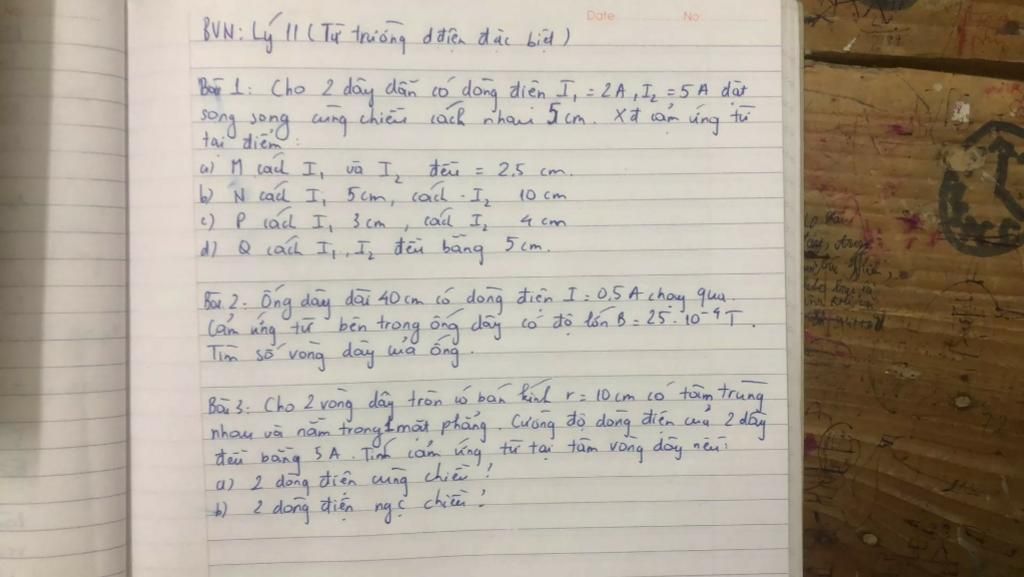 Date No
BVN: Lý 11 (Từ trường d điện đặc biệt)
Bài 1: Cho 2 dây dẫn có dòng điện I₁ = 2A, I₂ = 5A đặt
song song cùng chiều cách nhau 5 cm. Xđ cảm ứng từ
tại điểm:
a) M cách I₁ và I₂ đều = 2.5 cm.
b) N cách I₁ 5cm, cách I₂ 10 cm
c) P cách I₁ 3 cm, cách I₂ 4 cm
d) Q cách I₁, I₂ đều bằng 5 cm.
Bài 2: Ống dây dài 40 cm có dòng điện I = 0,5 A chạy qua.
Cảm ứng từ bên trong ống dây có độ lớn B = 25.10⁻⁴ T.
Tìm số vòng dây của ống.
Bài 3: Cho 2 vòng dây tròn có bán kính r = 10 cm có tâm trùng
nhau và nằm trong 1 mặt phẳng. Cường độ dòng điện của 2 dây
đều bằng 5 A. Tính cảm ứng từ tại tâm vòng dây nếu:
a) 2 dòng điện cùng chiều?
b) 2 dòng điện ngc chiều?